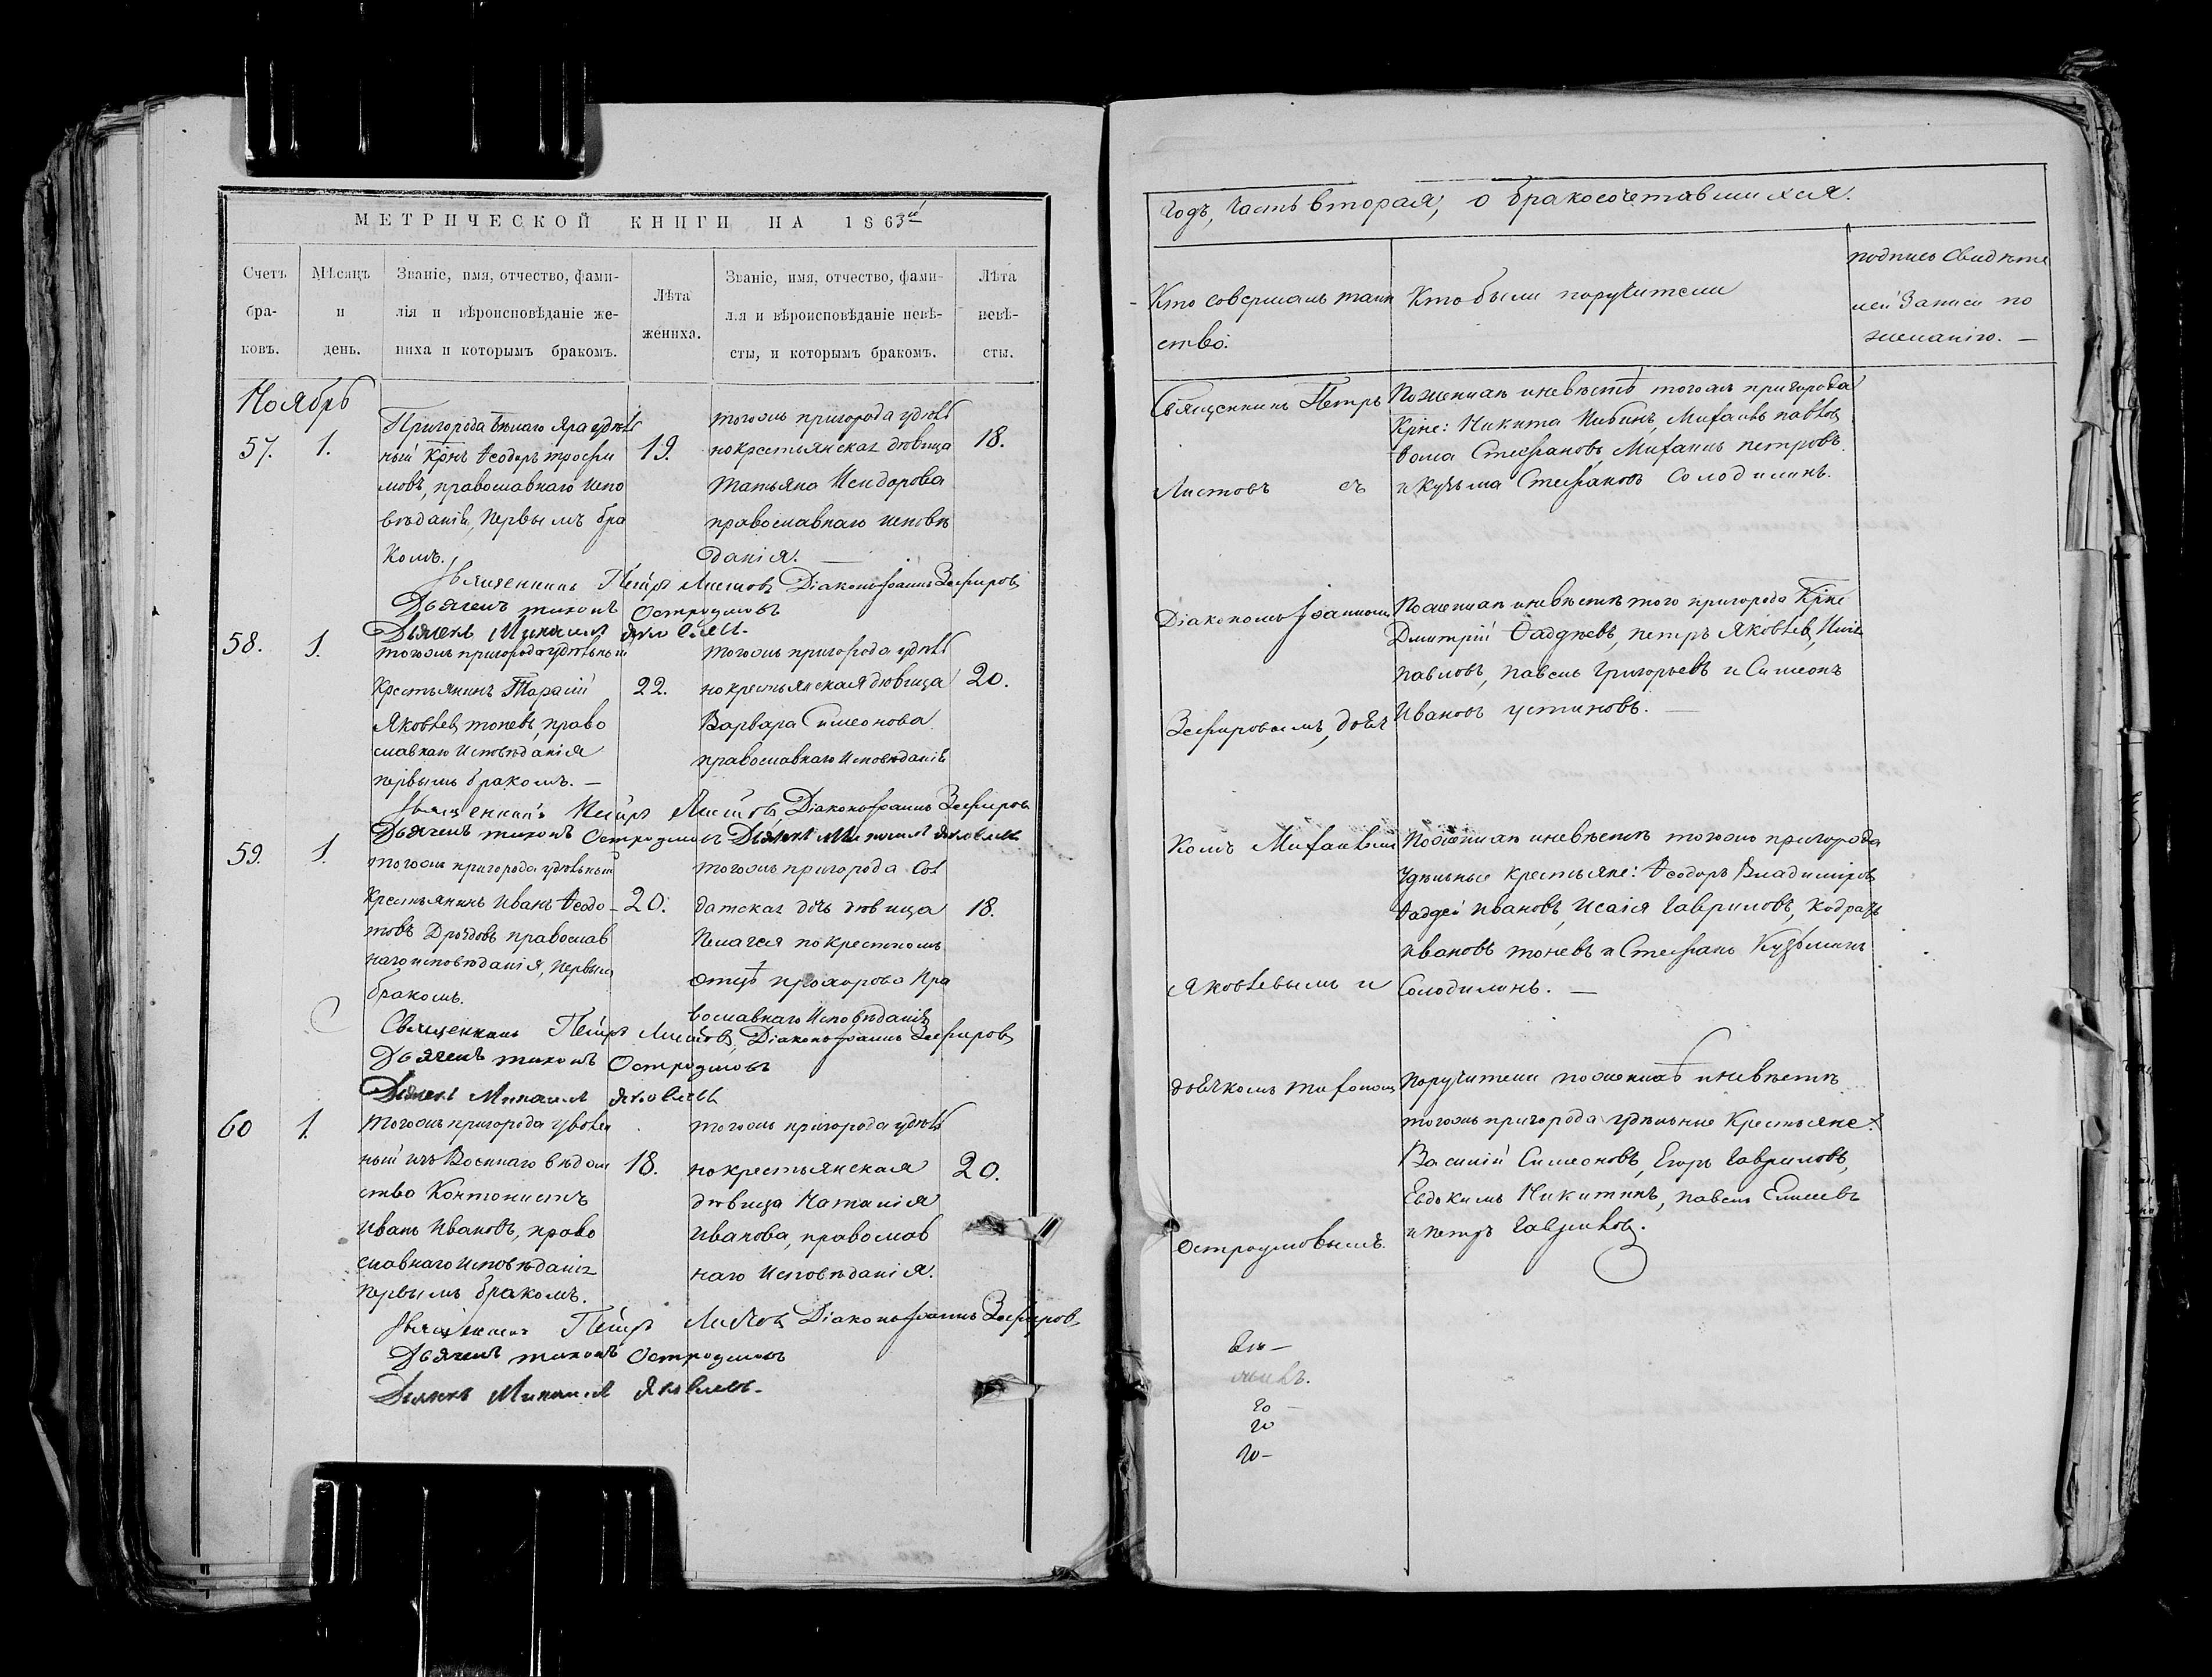 МЕТРИЧЕСКОЙ КНИГИ НА 1863й
Счетъ бра- ковъ.
Мѣсяцъ и день.
Званіе, имя, отчество, фами-
лія и вѣроисповѣданіе же-
ниха и которымъ бракомъ.
Лѣта
жениха.
Званіе, имя, отчество, фами-
лія и вѣроисповѣданіе невѣ-
сты, и которымъ бракомъ.
Лѣта
невѣ-
сты.
Ноябрь
57. 1.
Пригорода Бѣлаго Яра удѣль
ный Крнъ Ѳеодоръ трофи
мовъ, православнаго испо
вѣданія, первымъ бра
комъ.
19.
тогожъ пригорода удѣль
нокрестьянская дѣвица
Татьяна Исидорова
православнаго исповѣ
данія. —
18.
Священникъ Петръ Листовъ, Діаконъ Іоаннъ Зефировъ
Дьячекъ тихонъ Остроумовъ
Дьячекъ Михаилъ Яковлевъ.
58. 1.
тогожъ пригорода удѣльный
Крестьянинъ Тарасій
Яковлевъ тонеѣвъ, право
славнаго исповѣданія
первымъ бракомъ. —
22.
тогожъ пригорода удѣль
нокрестьянская дѣвица
Варвара Симеонова
православнаго исповѣданія
20.
Священникъ Петръ Листовъ, Діаконъ Іоаннъ Зефировъ
Дьячекъ тихонъ Остроумовъ Дьячекъ Михаилъ Яковлевъ
59. 1.
тогожъ пригорода удѣльный
Крестьянинъ Иванъ Ѳеодо
товъ Дроздовъ православ
наго исповѣданія, первымъ
бракомъ.
20.
тогожъ пригорода сол
датская дочь дѣвица
Пелагея по крестномъ
отцѣ прохорова пра
вославнаго исповѣданія
18.
Священникъ Петръ Листовъ, Діаконъ Іоаннъ Зефировъ
Дьячекъ тихонъ Остроумовъ
Дьячекъ Михаилъ Яковлевъ
60 1.
тогожъ пригорода уволен
ный изъ Военнаго вѣдом
ства Контонистъ
Иванъ Ивановъ, право
славнаго исповѣданія
первымъ бракомъ.
18.
тогожъ пригорода удѣль
нокрестьянская
дѣвица Наталія
Иванова, православ
наго исповѣданія.
20.
Священникъ Петръ Листовъ, Діаконъ Іоаннъ Зефировъ,
Дьячекъ тихонъ Остроумовъ
Дьячекъ Михаилъ Яковлевъ.
Годъ, часть вторая, о бракосочетавшихся.
Кто совершалъ таин
ство.
Кто были поручители
подпись свидѣте
лей записи по
желанію. —
Священникъ Петръ
Листовъ съ
Діакономъ Іоанномъ
Зефировымъ, дьяч
комъ Михаиломъ
Яковлевымъ и
дьячкомъ тихономъ
Остроумовымъ.
По женихѣ и невѣстѣ тогожъ пригорода
Крне: Никита Шибинъ, Михаилъ павловъ,
Ѳома Стефановъ, Михаилъ петровъ
и Кузьма Стефановъ Солодилинъ.
По женихѣ и невѣстѣ того пригорода Крне
Дмитрій Ѳаддѣевъ, петръ Яковлевъ,
павловъ, павелъ Григорьевъ и Симеонъ
Ивановъ устиновъ. —
По женихѣ и невѣстѣ тогожъ пригорода
удѣльные крестьяне: Ѳеодоръ Владиміровъ
Ѳаддей Ивановъ, Исаія Гавриловъ, Кодратъ
ивановъ тонеѣвъ и Стефанъ Кузьминъ
Солодилинъ. —
Поручители по женихѣ и невѣстѣ
тогожъ пригорода удѣльные Крестьяне:
Василій Симеоновъ, Егоръ Гавриловъ,
Евдокимъ Никитинъ, павелъ Елисеевъ
и петръ Гавриловъ.
го
го
го —